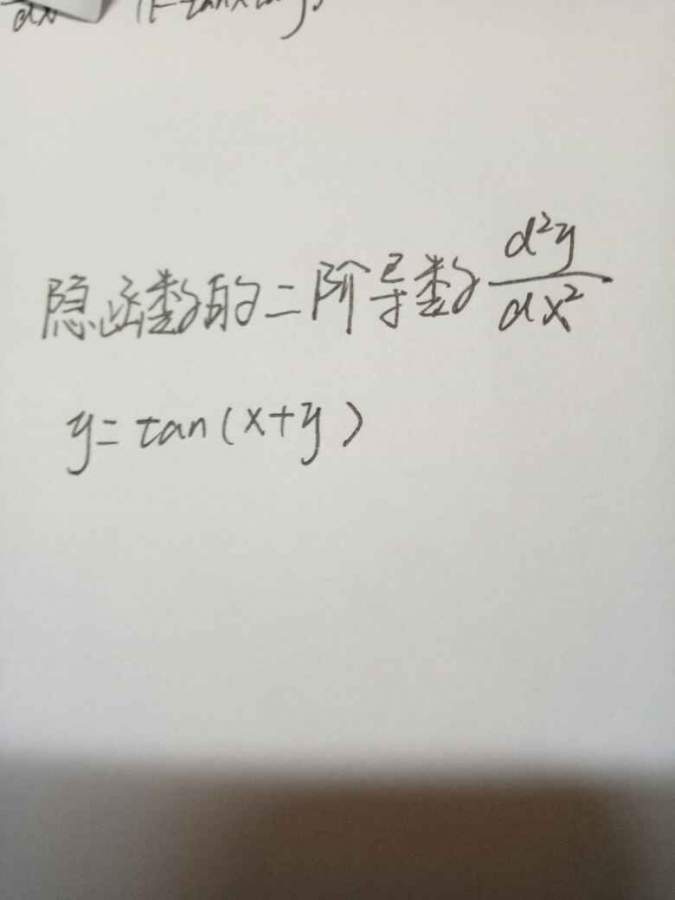 隐函数的二阶导数 d²y/dx²
y=tan(x+y)